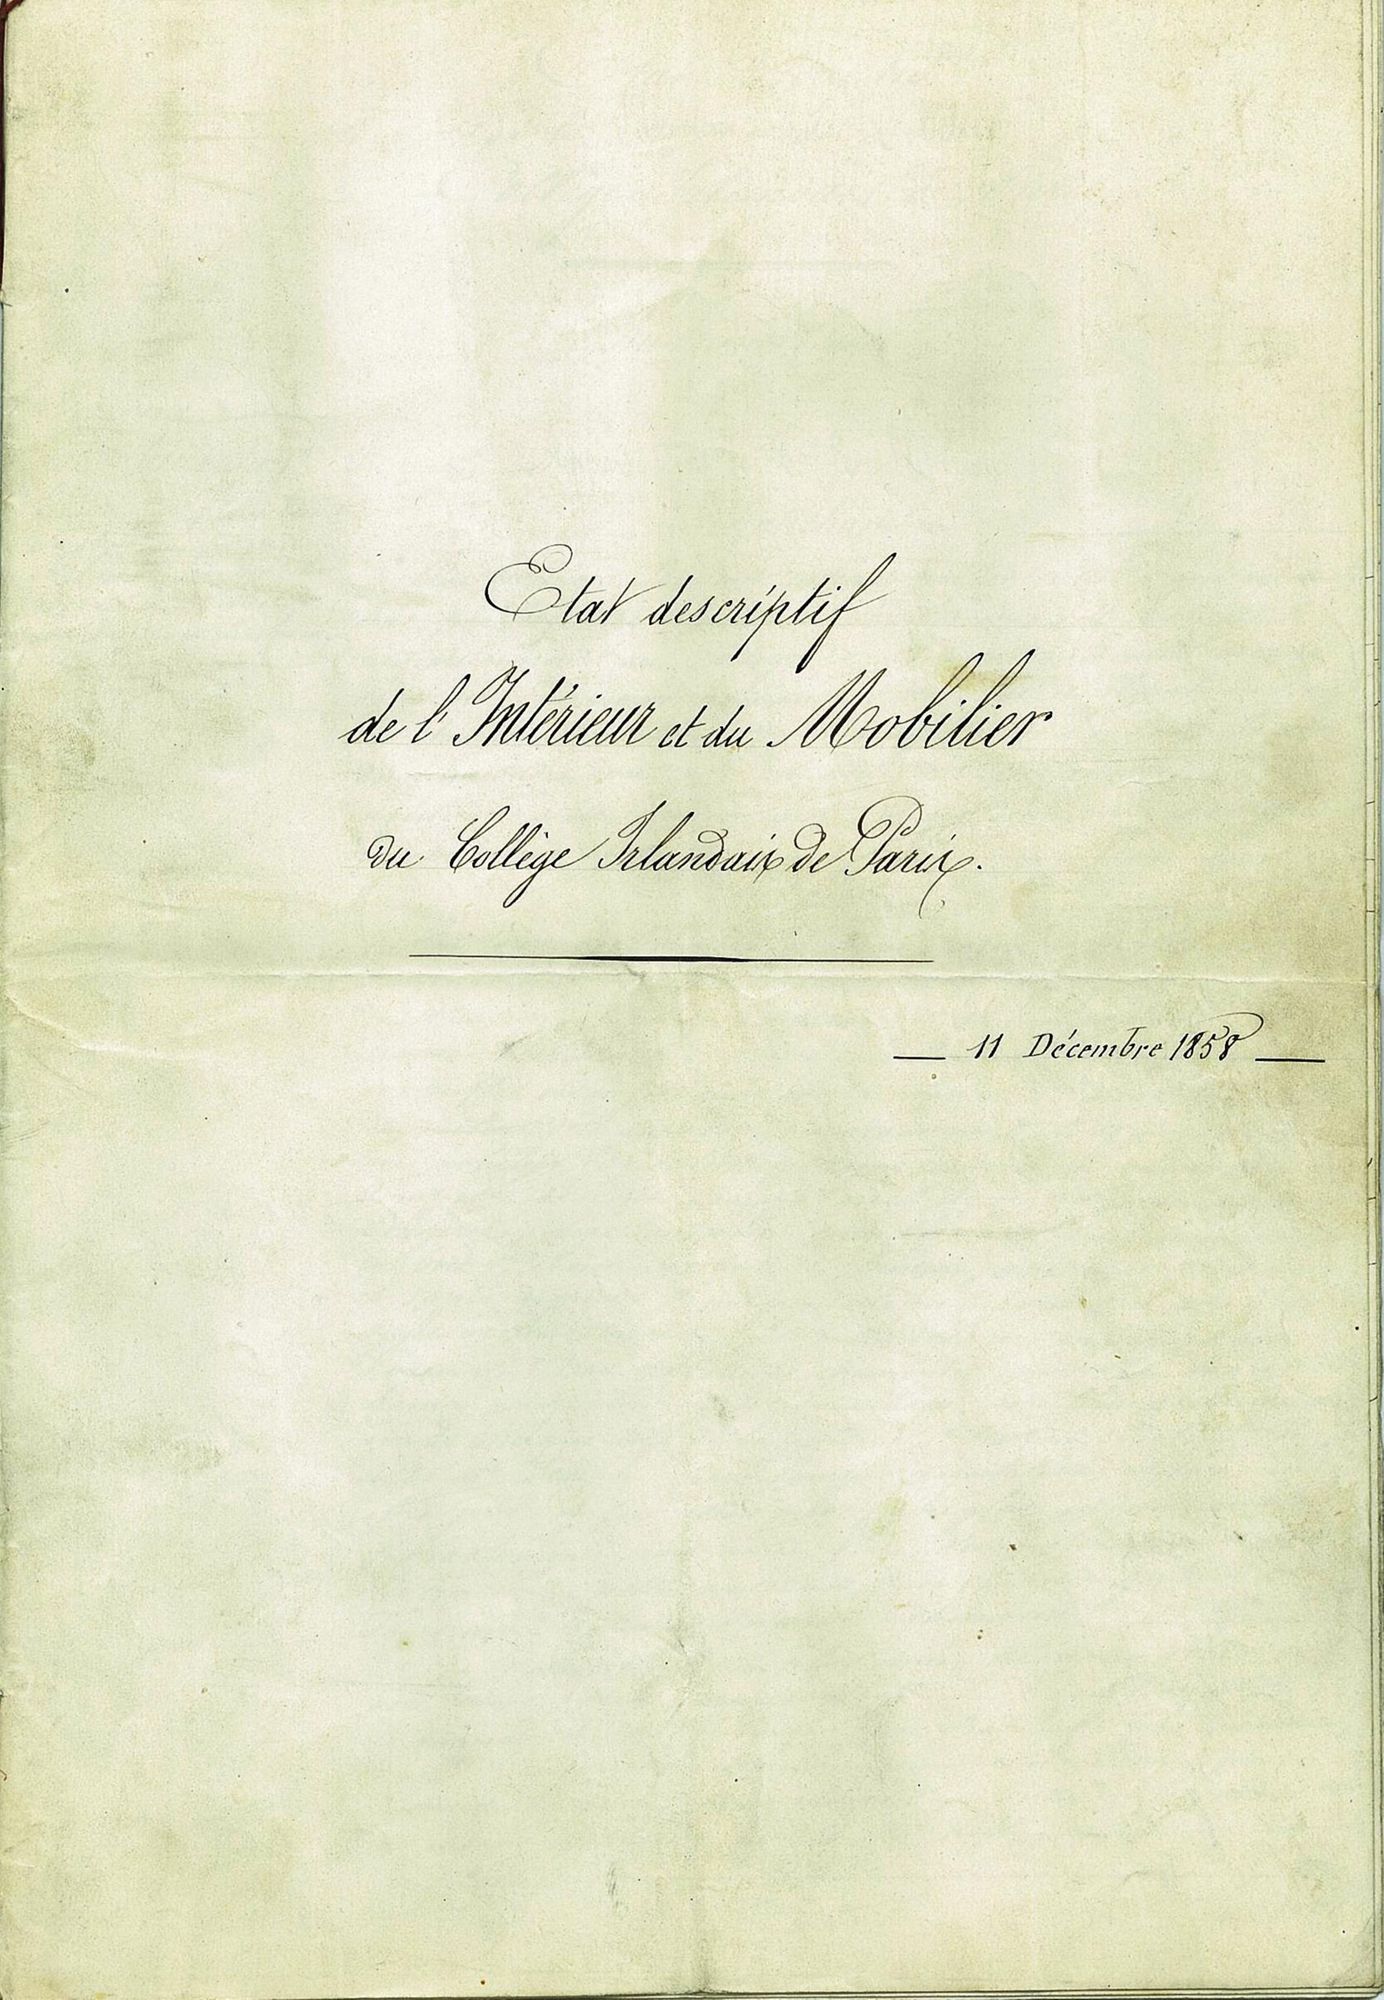 Etat descriptif
de l'Intérieur et du Mobilier
du Collège Irlandais de Paris.
— 11 Décembre 1858 —